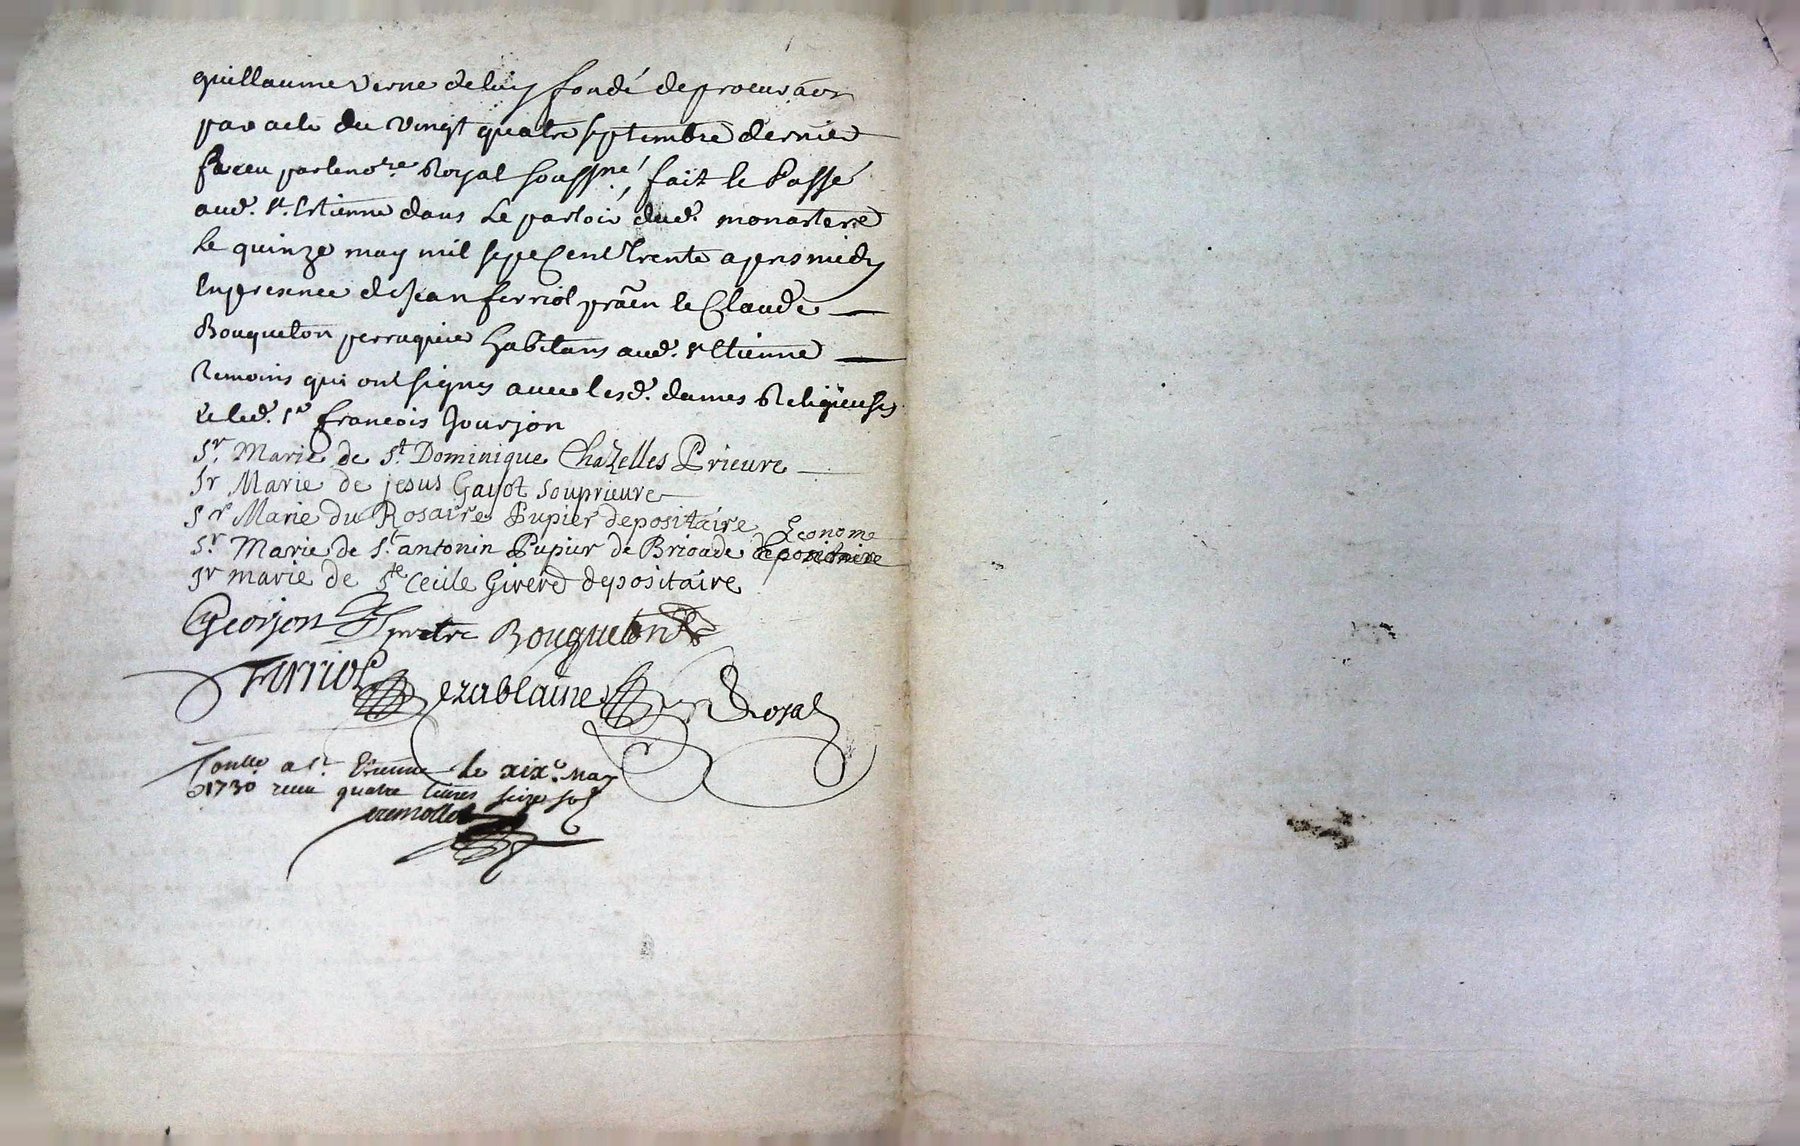 guillaume verne deluy fondé de procuraon
par acte du vingt quatre septembre dernier
Receu par le no.re Royal soussné, fait le Passé
aud. st. Estienne dans le parloir dud. monastere
le quinze may mil sept Cent Trente apres midy
En presence de jean ferriol praen le Claude
Bouqueton perruquier habitans aud. st Etienne
Temoins qui ont signés avec lesd. dames Religieuses
le led. sr françois Jourjon
Sr. Marie de St. Dominique Chazelles Prieure
Sr Marie de jesus Gayot souprieure
Sr Marie du Rosaire Pupier depositaire
Sr. Marie de St. antonin Pupier de Brioude depositaire Econome
Sr marie de Ste Cecile Girerd depositaire
pretre Bouqueton
ferriol Royal
Conllé a st. Etienne le xixe. May
1730 receu quatre livres seize sols